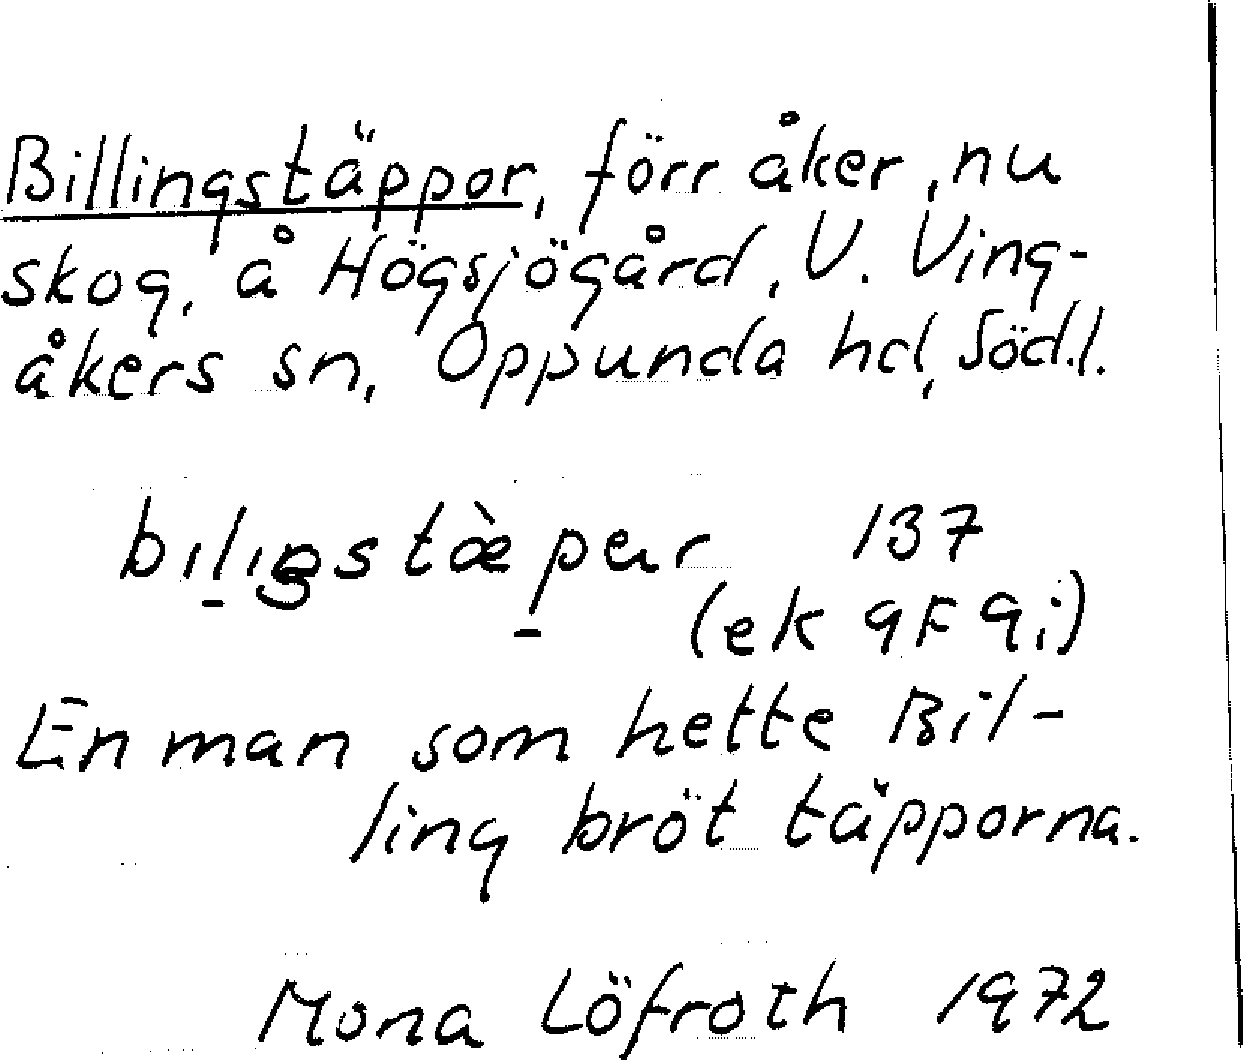 Billingstäppor, förr åker, nu
skog, å Högsjögård, V. Ving-
åkers sn, Oppunda hd, Södl.
137
(ek 9F 9i)
En man som hette Bil-
ling bröt täpporna.
Mona Löfroth 1972